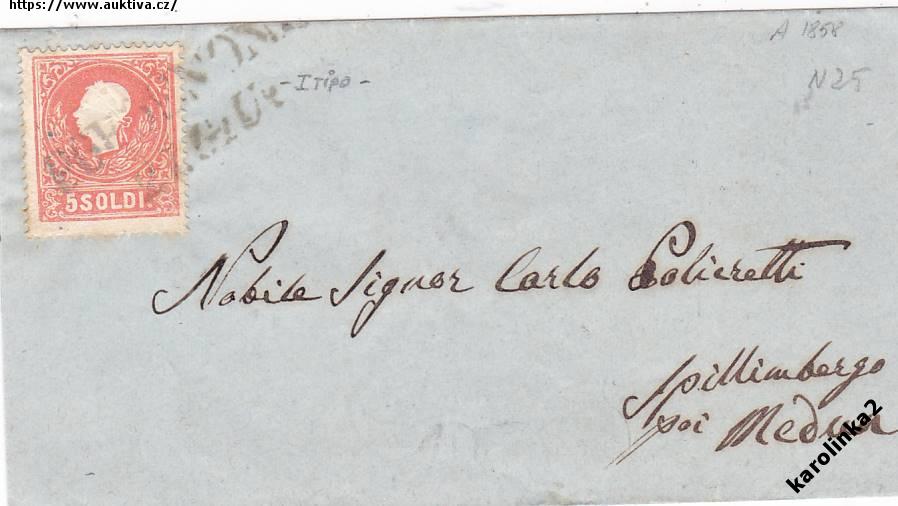 https://www.auktiva.cz/
A 1858
- I tipo -
N 25
5 SOLDI.
Nobile Signor Carlo Policretti
Spillimbergo
poi Medun
karolinka2